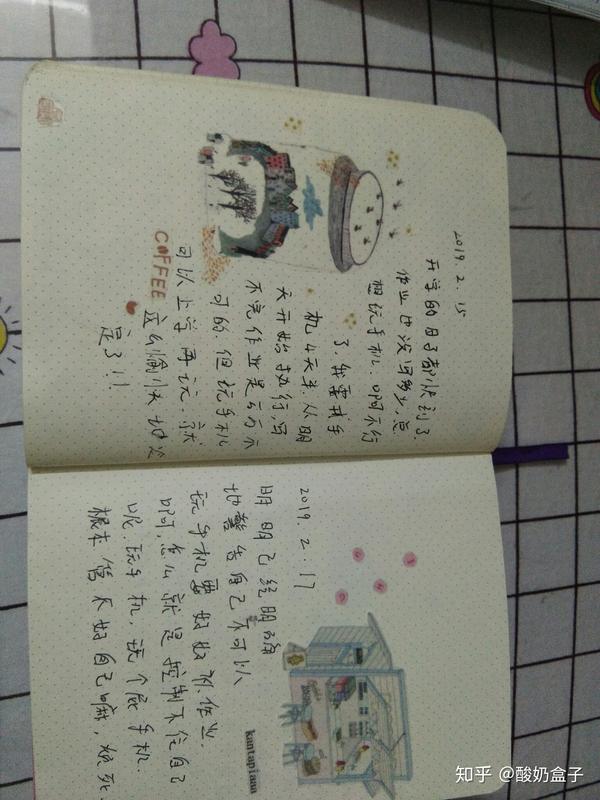 2019. 2. 15
开学的日子都快到了,
作业也没写多少,总
想玩手机.啊啊不行
了.我要戒手
机4天半.从明
天开始执行,写
不完作业是万万不
可的.但玩手机
可以上学再玩.就
这么愉快地决
定了!!
COFFEE
2019. 2. 17
明明已经明确
地警告自己不可以
玩手机要好好做作业.
啊啊,怎么就是控制不住自己
呢.玩手机,玩个屁手机.
根本管不好自己嘛,烦死
kantapiaaa
知乎 @酸奶盒子